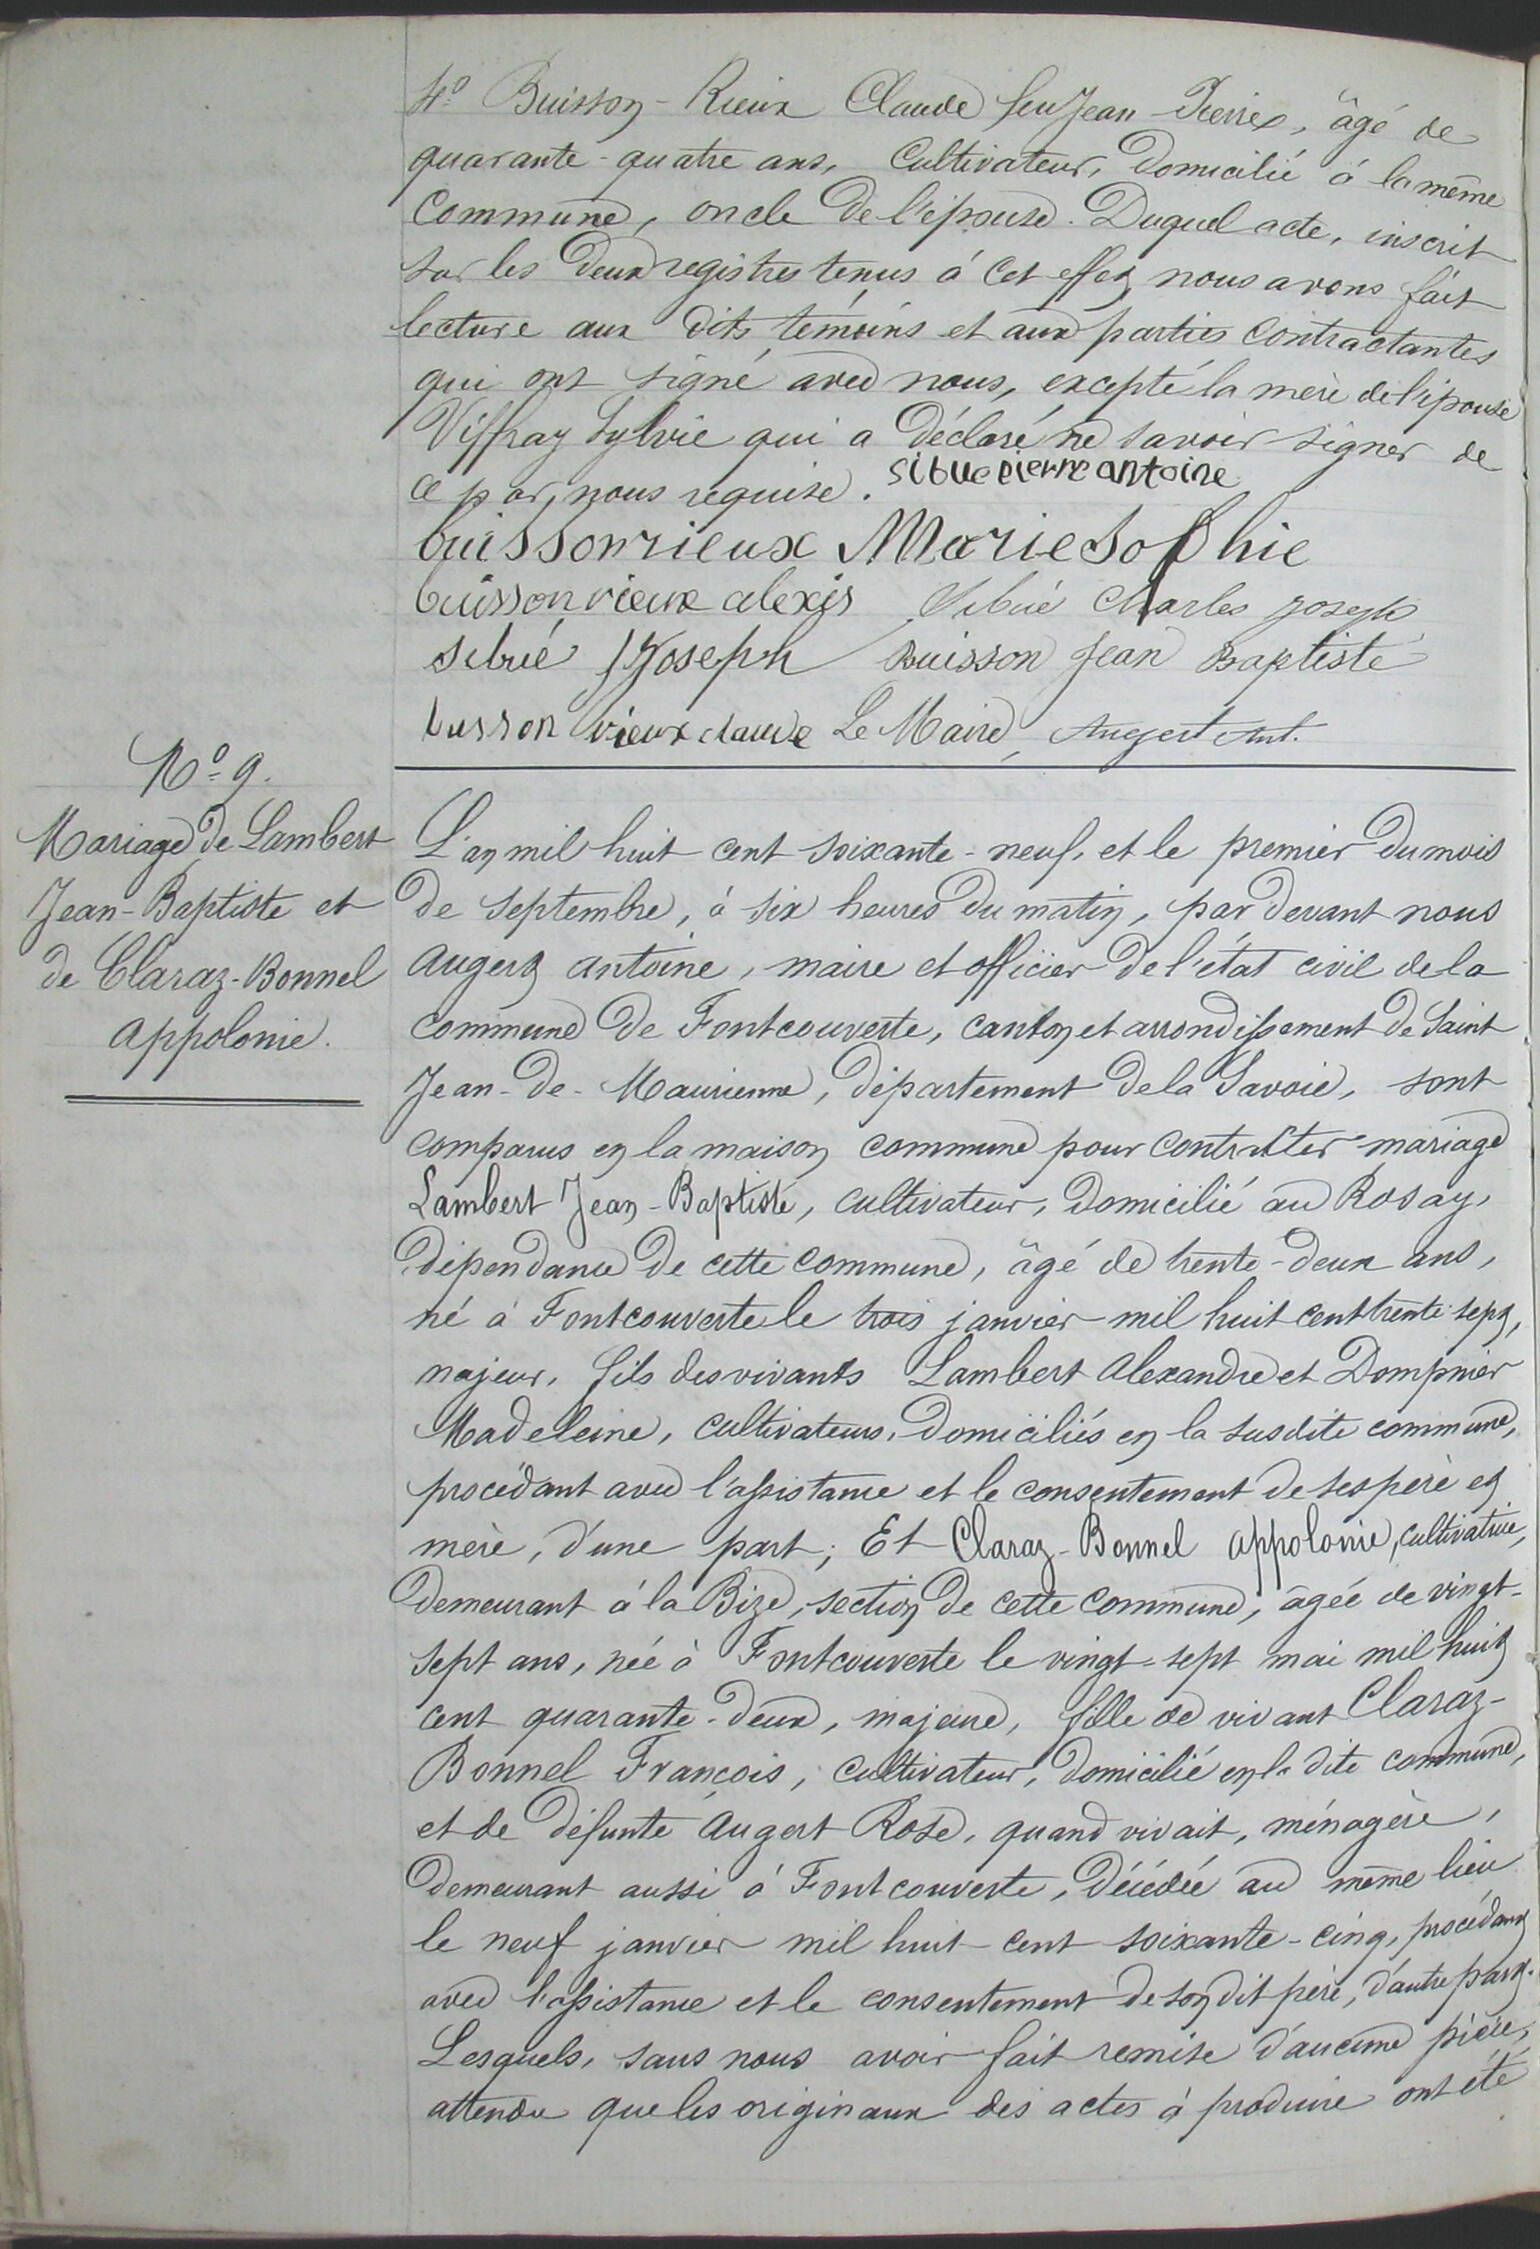 4º Buisson-Rieux Claude feu Jean-Pierre, âgé de
quarante-quatre ans, Cultivateur, domicilié à la même
Commune, oncle de l'épouse. Duquel acte, inscrit
sur les deux registres tenus à cet effet, nous avons fait
lecture aux dits témoins et aux parties contractantes
qui ont signé avec nous, excepté la mère de l'épouse
Viffray Sylvie qui a déclaré ne savoir signer de
ce par nous requise. Sibue pierre antoine
buissonrieux Marie Sophie
buissonrieux alexis Sibué Charles joseph
Sibué Joseph Buisson Jean Baptiste
busson rieux claude Le Maire, Augert Ant.
Nº 9.
Mariage de Lambert
Jean-Baptiste et
de Claraz-Bonnel
Appolonie.
L'an mil huit cent soixante-neuf, et le premier du mois
de septembre, à six heures du matin, par devant nous
Augert Antoine, maire et officier de l'état civil de la
commune de Fontcouverte, canton et arrondissement de Saint
Jean-de-Maurienne, département de la Savoie, sont
comparus en la maison commune pour contracter mariage
Lambert Jean-Baptiste, cultivateur, domicilié au Rosay,
dépendance de cette commune, âgé de trente-deux ans,
né à Fontcouverte le trois janvier mil huit cent trente sept,
majeur, fils des vivants Lambert Alexandre et Dompnier
Madeleine, cultivateurs, domiciliés en la susdite commune,
procédant avec l'assistance et le consentement de ses père et
mère, d'une part; Et Claraz-Bonnel Appolonie, cultivatrice,
demeurant à la Bize, section de cette commune, âgée de vingt-
sept ans, née à Fontcouverte le vingt-sept mai mil huit
cent quarante-deux, majeure, fille de vivant Claraz-
Bonnel François, cultivateur, domicilié en la dite commune,
et de défunte Augert Rose, quand vivait, ménagère,
demeurant aussi à Fontcouverte, décédée au même lieu
le neuf janvier mil huit cent soixante-cinq, procédant
avec l'assistance et le consentement de son dit père, d'autre part.
Lesquels, sans nous avoir fait remise d'aucune pièce,
attendu que les originaux des actes à produire ont été